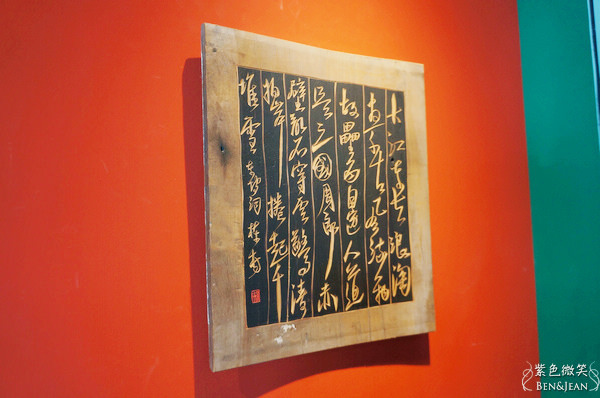 大江東去浪淘
盡千古風流人物
故壘西邊人道
是三國周郎赤
壁亂石穿雲驚濤
拍岸捲起千
堆雪東坡詞
紫色微笑
BEN&JEAN